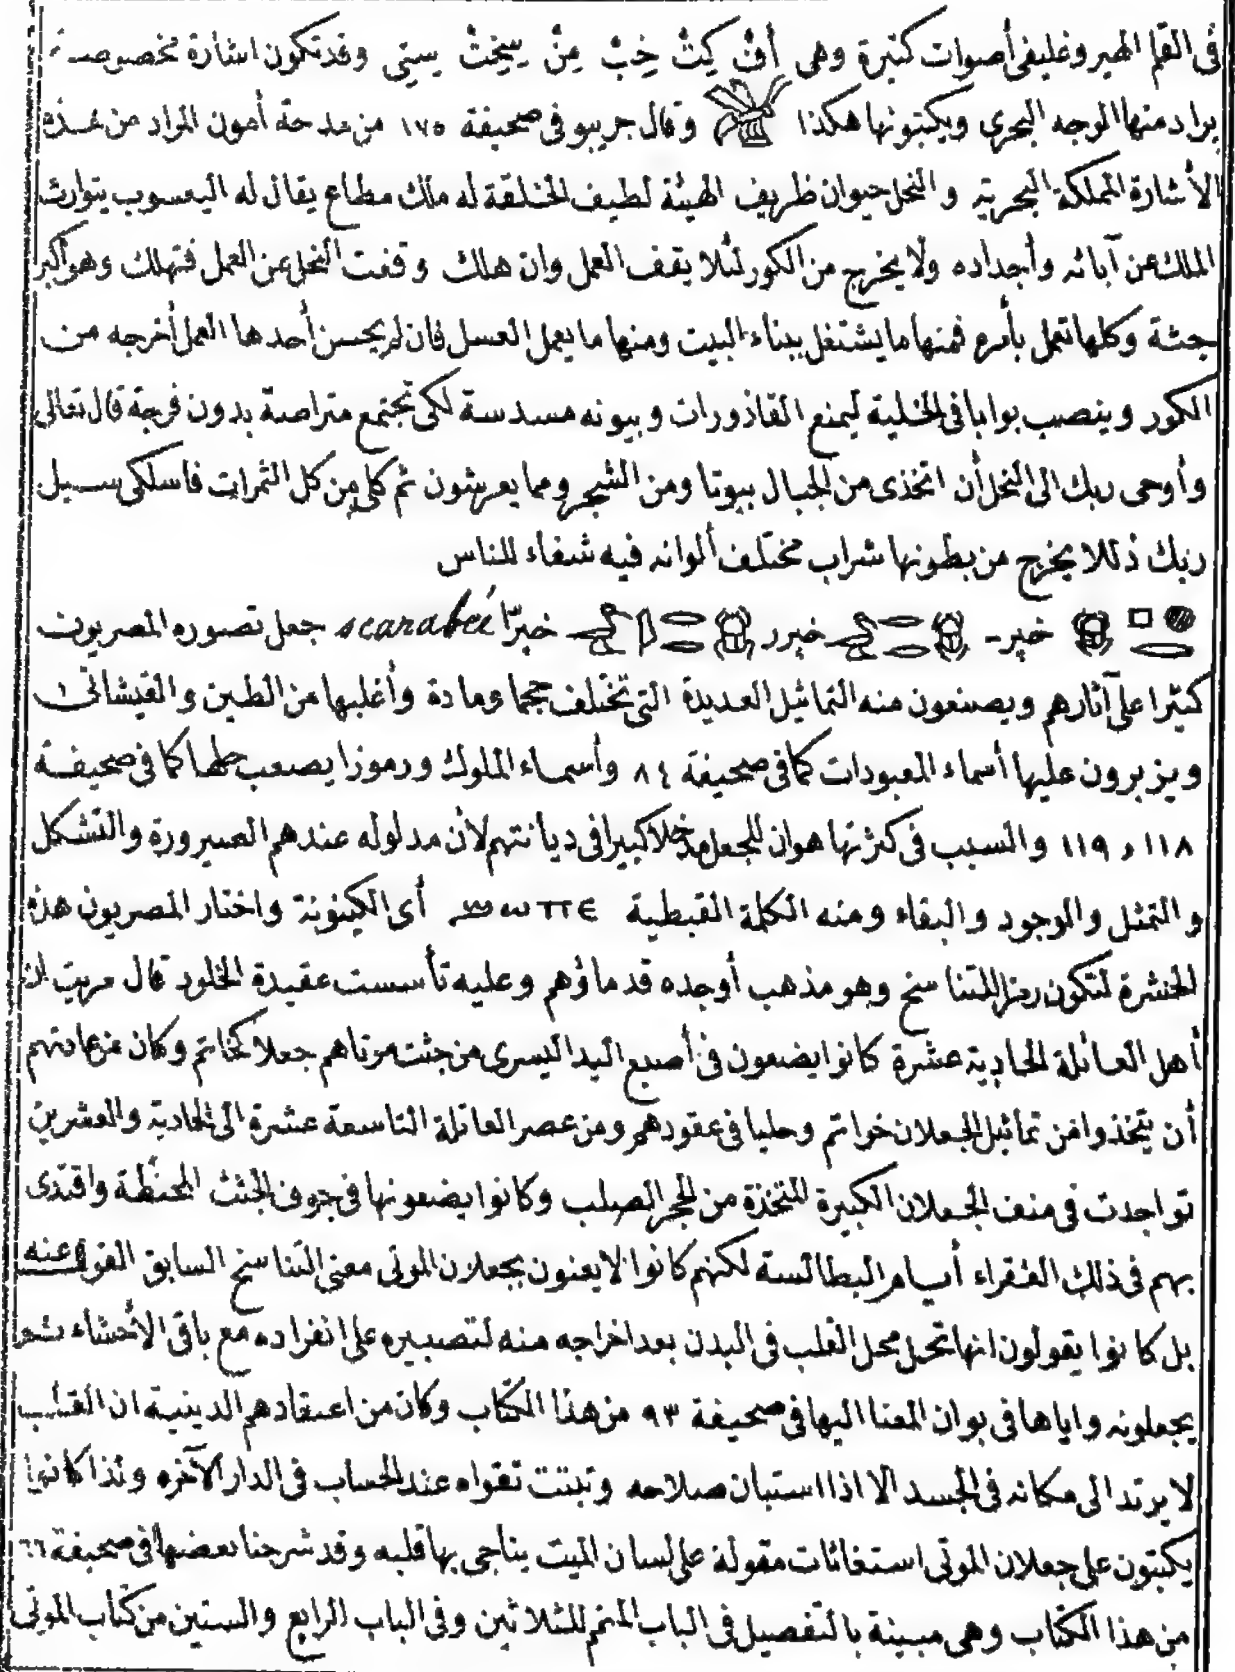 فى القلم الهيروغليفى أصوات كثيرة وهى أفْ كِتْ خِبْ مِنْ سِخِتْ سِتِى وقد تكون اشارة مخصوصة
يراد منها الوجه البحرى ويكتبونها هكذا وقال جريبو فى صحيفة ١٧٥ من مدحة أمون المراد من هذه
الأشارة المملكة البحرية والنحل حيوان ظريف الهيئة لطيف الخلقة له ملك مطاع يقال له اليعسوب يتوارث
الملك عن آبائه وأجداده ولا يخرج من الكور لئلا يقف العمل وان هلك وقفت النحل عن العمل فتهلك وهو أكبر
جثة وكلها تعمل بأمره فمنها ما يشتغل ببناء البيت ومنها ما يعمل العسل فان لم يحسن أحدها العمل أخرجه من
الكور وينصب بوابا فى الخلية ليمنع القاذورات وبيوته مسدسة لكى تجتمع متراصة بدون فرجة قال تعالى
وأوحى ربك الى النحل أن اتخذى من الجبال بيوتا ومن الشجر ومما يعرشون ثم كلى من كل الثمرات فاسلكى سبل
ربك ذللا يخرج من بطونها شراب مختلف ألوانه فيه شفاء للناس
خپر - خپرر خپرّا scarabeé جعل تصوره المصريون
كثيرا على آثارهم ويصنعون منه التماثيل العديدة التى تختلف حجما ومادة وأغلبها من الطين والقيشانى
ويزبرون عليها أسماء المعبودات كما فى صحيفة ٨٤ وأسماء الملوك ورموزا يصعب حلها كما فى صحيفة
١١٨ و ١١٩ والسبب فى كثرتها هو ان للجعل مدخلا كبيرا فى ديانتهم لأن مدلوله عندهم الصيرورة والتشكل
والتمثل والوجود والبقاء ومنه الكلمة القبطية أى الكينونة واختار المصريون هذه
الحشرة لتكون رمزا للتناسخ وهو مذهب أوجده قدماؤهم وعليه تأسست عقيدة الخلود قال مريت ان
أهل العائلة الحادية عشرة كانوا يضعون فى أصبع اليد اليسرى من جثث موتاهم جعلا كخاتم وكان من عادتهم
أن يتخذوا من تماثيل الجعلان خواتم وحليا فى عقودهم ومن عصر العائلة التاسعة عشرة الى الحادية والعشرين
تواجدت فى منف الجعلان الكبيرة المتخذة من الحجر الصلب وكانوا يضعونها فى جوف الجثث المحنطة واقتدى
بهم فى ذلك الفقراء أيام البطالسة لكنهم كانوا لا يعنون بجعلان الموتى معنى التناسخ السابق القول عنه
بل كانوا يقولون انها تحل محل القلب فى البدن بعد اخراجه منه لتصبيره على انفراده مع باقى الأحشاء ثم
يجعلونه واياها فى بوان المعنا اليها فى صحيفة ٩٣ من هذا الكتاب وكان من اعتقادهم الدينية ان القلب
لا يرتد الى مكانه فى الجسد الا اذا استبان صلاحه وتبتت تقواه عند الحساب فى الدار الآخره ولذا كانوا
يكتبون على جعلان الموتى استغاثات مقولة على لسان الميت يناجى بها قلبه وقد شرحنا بعضها فى صحيفة ٦٦
من هذا الكتاب وهى مبينة بالتفصيل فى الباب المتمم للثلاثين وفى الباب الرابع والستين من كتاب الموتى